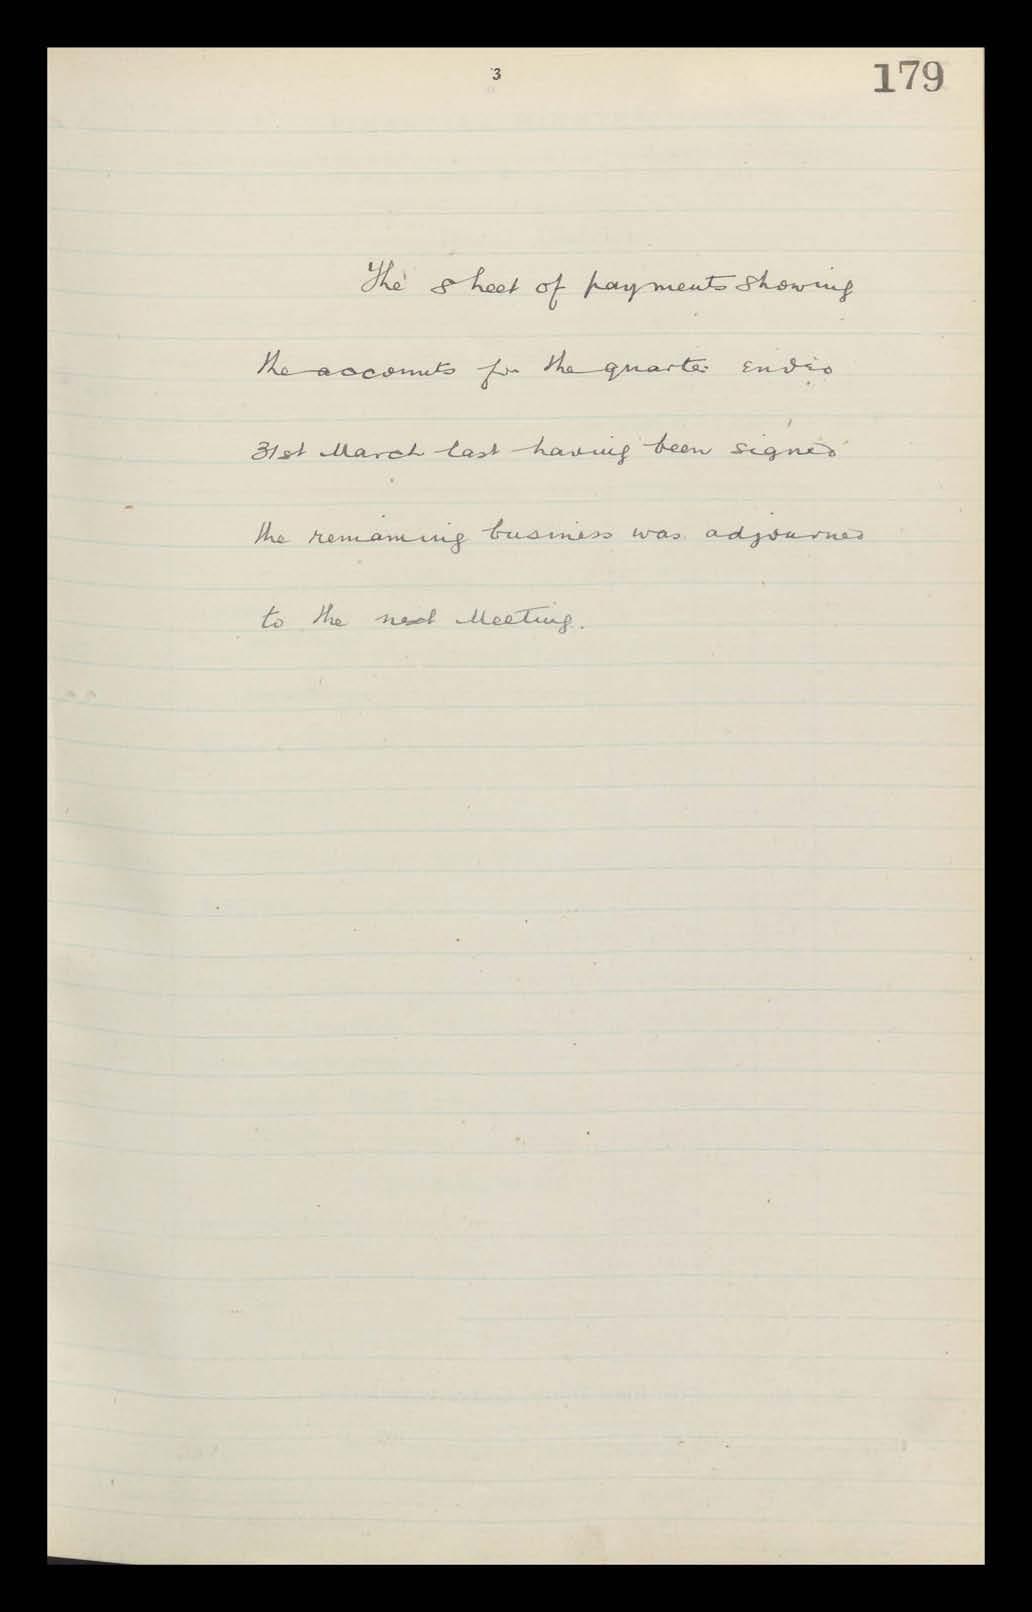 3
179
The sheet of payments showing
the accounts for the quarter ended
31st March last having been signed
the remaining business was adjourned
to the next Meeting.